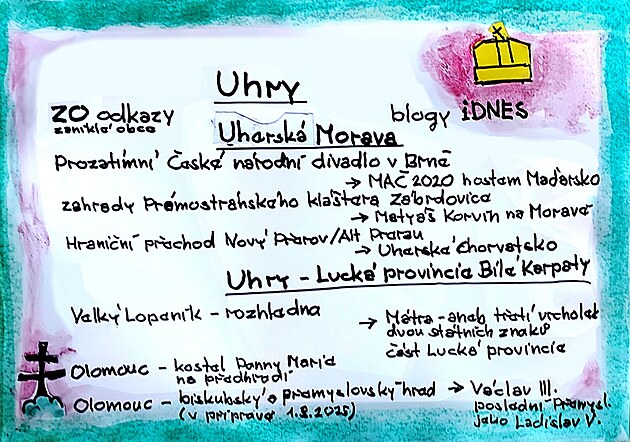 Uhry
ZO odkazy
zaniklé obce
blogy iDNES
Uharská Morava
Prozatímní České národní divadlo v Brně
→ MAČ 2020 hostem Maďarsko
zahrady Prémostránského kláštera Zabrdovice
→ Matyáš Korvín na Moravě
Hraniční přechod Nový Prerov/Alt Prerau
→ Uharská Chorvatsko
Uhry - Lucká provincia Bílé Karpaty
Velký Lopeník - rozhledna
→ Mátra - aneb třetí vrcholek
dvou státních znaků
část Lucká provincie
Olomouc - kostel Panny Marie
na předhradí
Olomouc - biskubský a přemyslovský hrad
(v přípravě 1.8.2025)
→ Václav III.
poslední Přemysl.
jako Ladislav V.